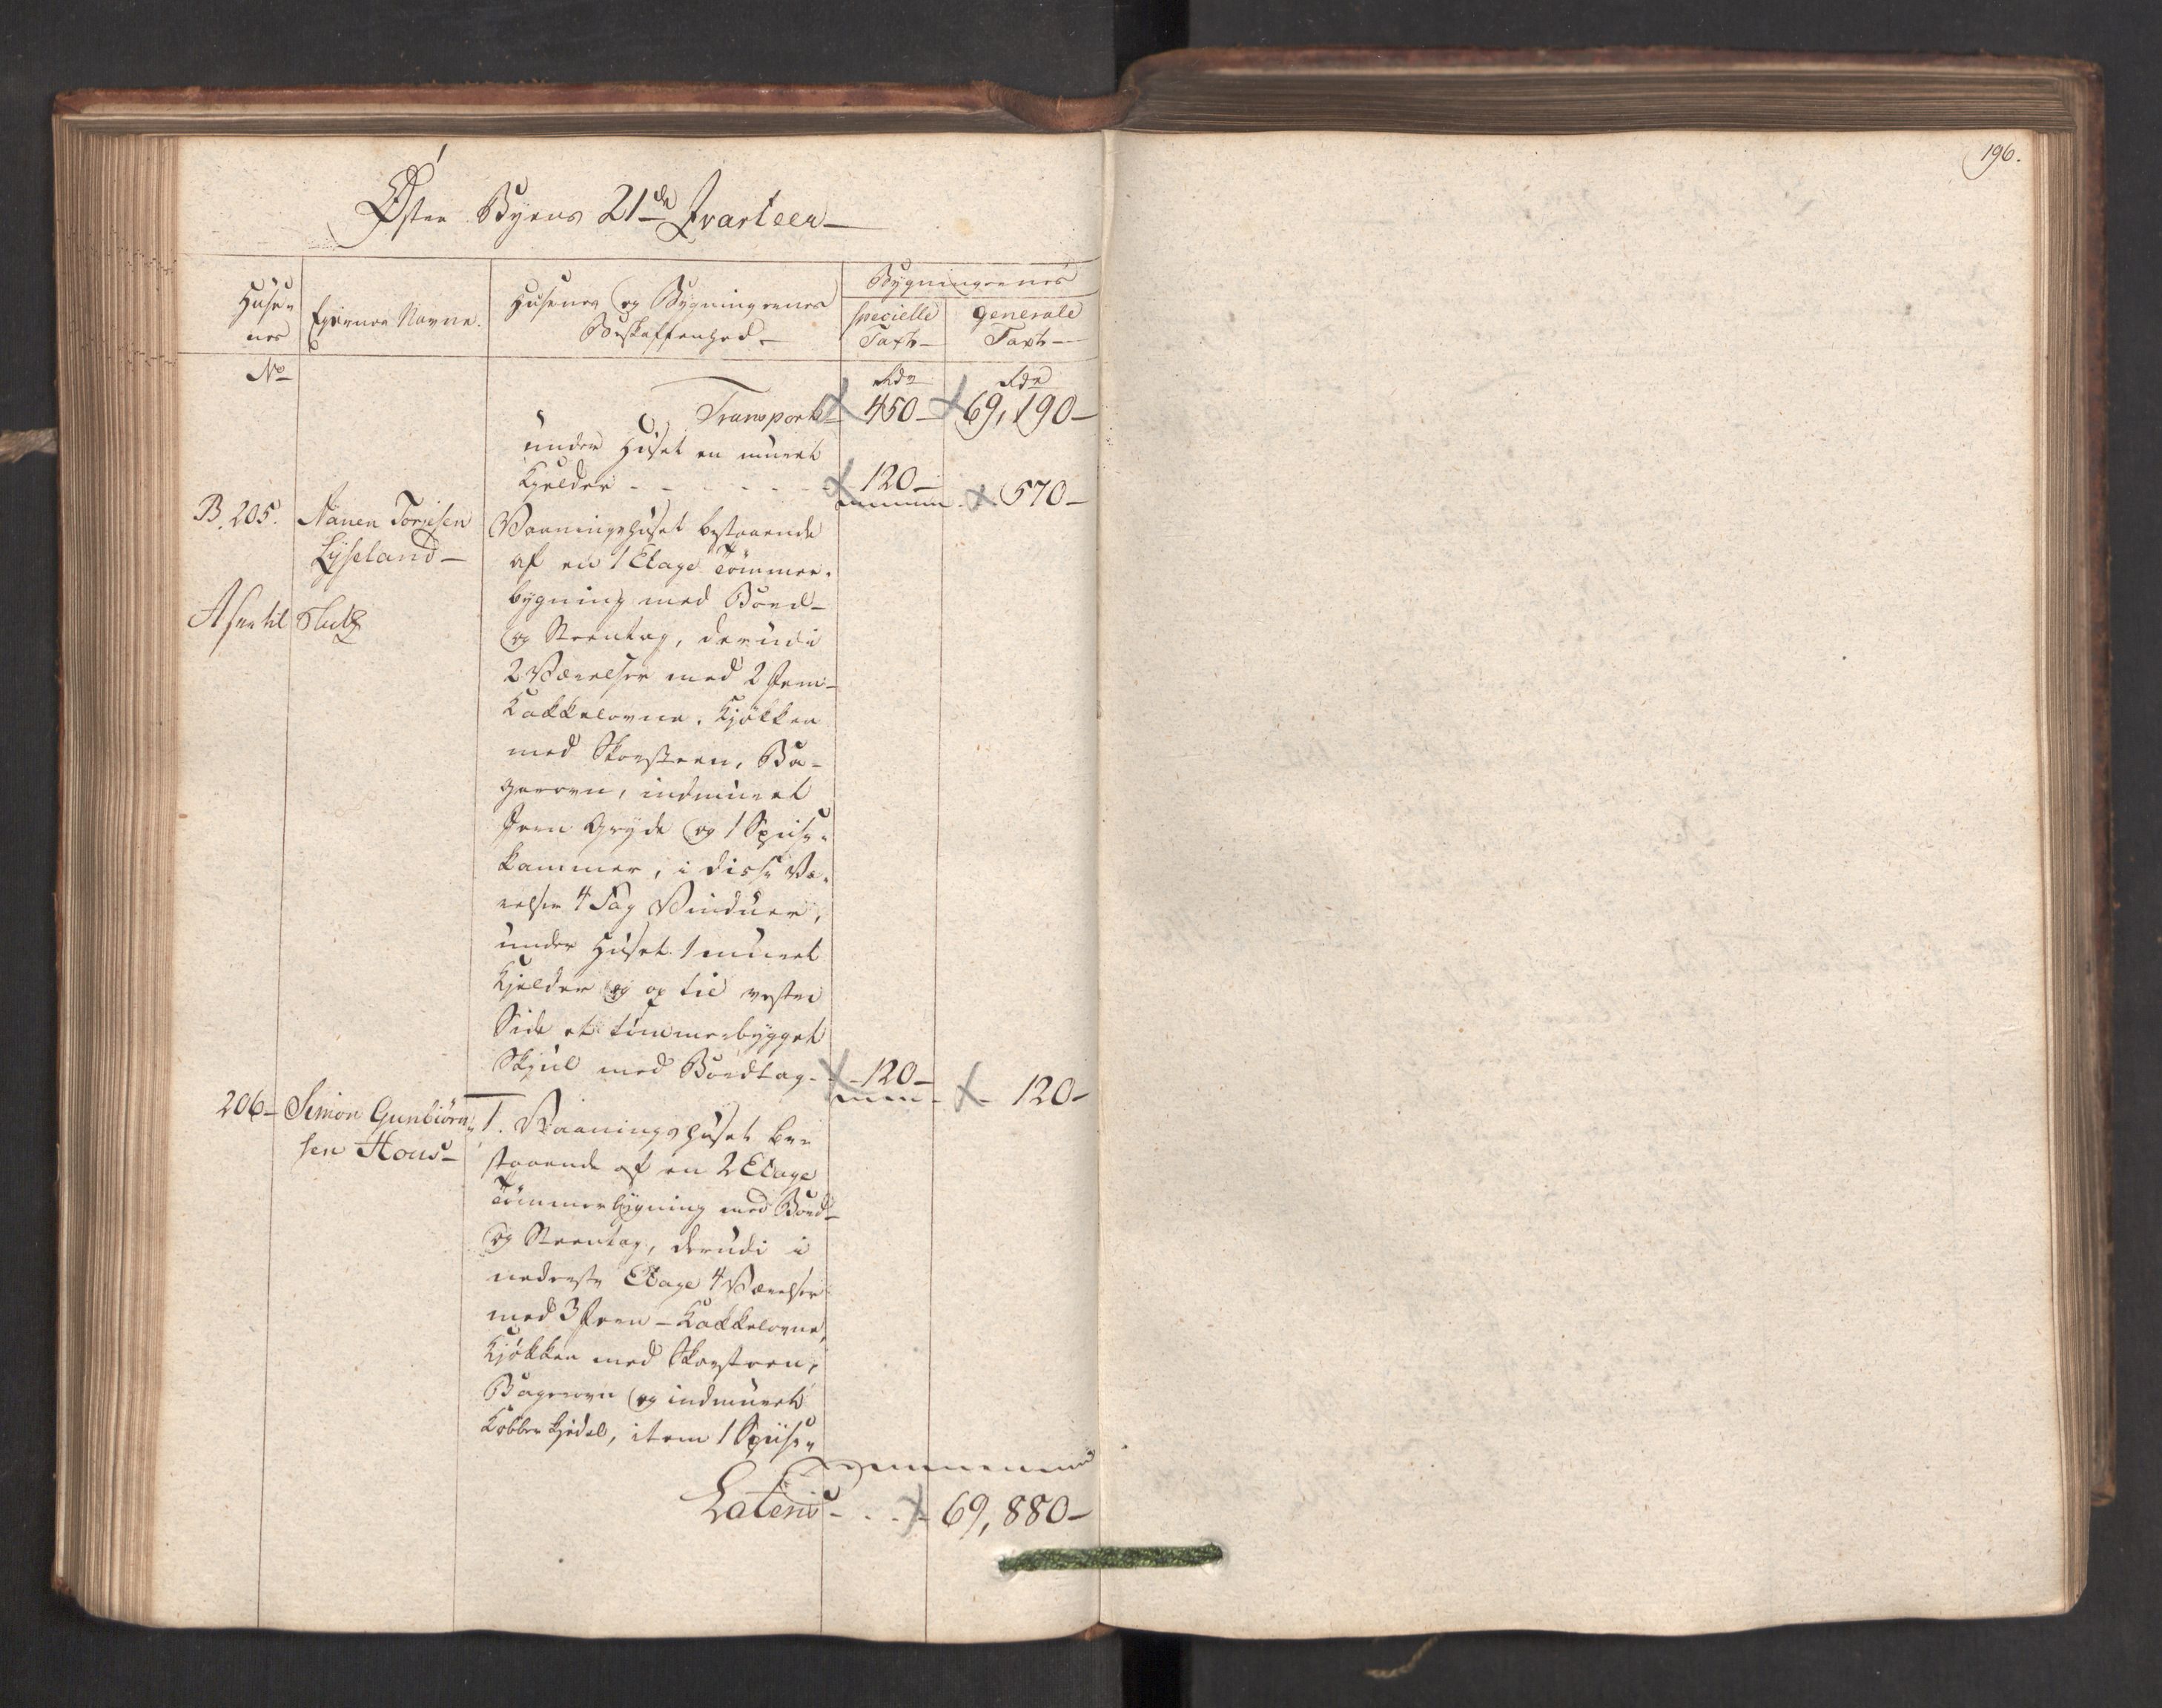 196.
Øster Byens 21de Qvarteer
Huse-
nes
Eyernes Navne.
Husenes og Bygningernes
Beskaffenhed
Bygningernes
specielle
Taxt
generale
Taxt
No
Rdr
Rdr
Transport
450
69,190
under Huset en muret
Kjelder - - - - - -
120
570
B. 205.
Nanen Torjesen
Lyseland
A see til
Vaaningshuset bestaaende
af en 1 Etage Tømmer-
bygning med Bord-
og Steentag, derudi
2 Værelser med 2 Jern-
Kakkelovne, Kjøkken
med Skorsteen, Ba-
gerovn, indmuret
Jern Gryde og 1 Spise-
kammer, i disse Væ-
relser 4 Fag Vinduer,
under Huset 1 muret
Kjelder og op til vestre
Side et tømmerbygget
Skjul med Bordtag -
120
120
206
Simon Gunbiørn-
sen Hous
1. Vaaningshuset be-
staaende af en 2 Etage
Tømmerbygning med Bord-
og Steentag, derudi i
nederste Etage 4 Værelser
med 3 Jern-Kakkelovne,
Kjøkken med Skorsteen,
Bagerovn og indmuret
Kobberkjedel, item 1 Spise-
Lateris - . . -
69,880